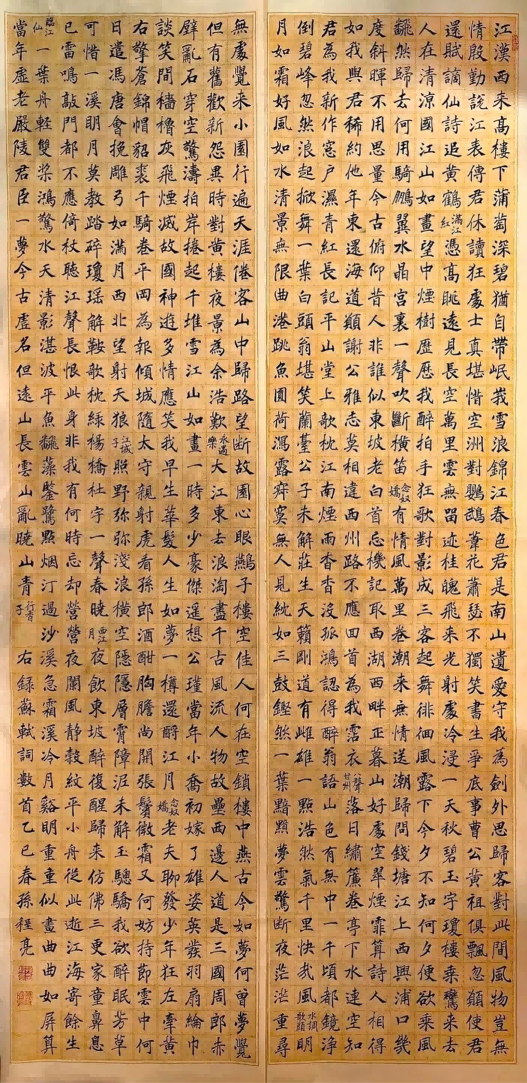 江漢西來高樓下蒲萄深碧猶自帶岷峨雪浪錦江春色君是南山遺愛守我為劍外思歸客對此間風物豈無
情殷勤說江表傳君休讀狂處士真堪惜空洲對鸚鵡葦花蕭瑟不獨笑書生爭底事曹公黃祖俱飄忽願使君
還賦謫仙詩追黃鶴滿江紅憑高眺遠見長空萬里雲無留迹桂魄飛來光射處冷浸一天秋碧玉宇瓊樓乘鸞來去
人在清涼國江山如畫望中煙樹歷歷我醉拍手狂歌對影成三客起舞徘徊風露下今夕不知何夕便欲乘風
飜然歸去何用騎鵬翼水晶宮裏一聲吹斷橫笛念奴嬌有情風萬里卷潮來無情送潮歸問錢塘江上西興浦口幾
度斜暉不用思量今古俯仰昔人非誰似東坡老白首忘機記取西湖西畔正暮山好處空翠煙霏算詩人相得
如我與君稀約他年東還海道願謝公雅志莫相違西州路不應回首為我霑衣八聲甘州落日繡簾卷亭下水連空知
君為我新作窗戶濕青紅長記平山堂上欹枕江南煙雨杳杳沒孤鴻認得醉翁語山色有無中一千頃都鏡淨
倒碧峰忽然浪起掀舞一葉白頭翁堪笑蘭臺公子未解莊生天籟剛道有雌雄一點浩然氣千里快哉風水調歌頭明
月如霜好風如水清景無限曲港跳魚圓荷瀉露寂寞無人見紞如三鼓鏗然一葉黯黯夢雲驚斷夜茫茫重尋
無處覺來小園行遍天涯倦客山中歸路望斷故園心眼鷰子樓空佳人何在空鎖樓中燕古今如夢何曾夢覺
但有舊歡新怨異時對黃樓夜景為余浩歎永遇樂大江東去浪淘盡千古風流人物故壘西邊人道是三國周郎赤
壁亂石穿空驚濤拍岸捲起千堆雪江山如畫一時多少豪傑遙想公瑾當年小喬初嫁了雄姿英發羽扇綸巾
談笑間檣櫓灰飛煙滅故國神遊多情應笑我早生華髮人生如夢一樽還酹江月念奴嬌老夫聊發少年狂左牽黃
右擎蒼錦帽貂裘千騎卷平岡為報傾城隨太守親射虎看孫郎酒酣胸膽尚開張鬢微霜又何妨持節雲中何
日遣馮唐會挽雕弓如滿月西北望射天狼江城子照野弥弥淺浪橫空隱隱層霄障泥未解玉驄驕我欲醉眠芳草
可惜一溪明月莫教踏碎瓊瑤解鞍欹枕綠楊橋杜宇一聲春曉西江月夜飲東坡醉復醒歸來仿佛三更家童鼻息
已雷鳴敲門都不應倚杖聽江聲長恨此身非我有何時忘却營營夜闌風靜縠紋平小舟從此逝江海寄餘生
臨江仙一葉舟輕雙槳鴻驚水天清影湛波平魚飜藻鑒鷺點煙汀過沙溪急霜溪冷月谿明重重似畫曲曲如屏算
當年虛老嚴陵君臣一夢今古虛名但遠山長雲山亂曉山青行香子右錄蘇軾詞數首乙巳春孫程亮